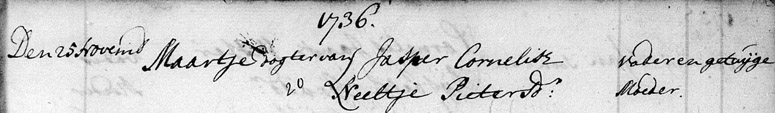 1736.
Den 25 Novemb Maartje dogter van Jasper Cornelisz vader en getuijge
Neeltje Pieters D: Moeder.